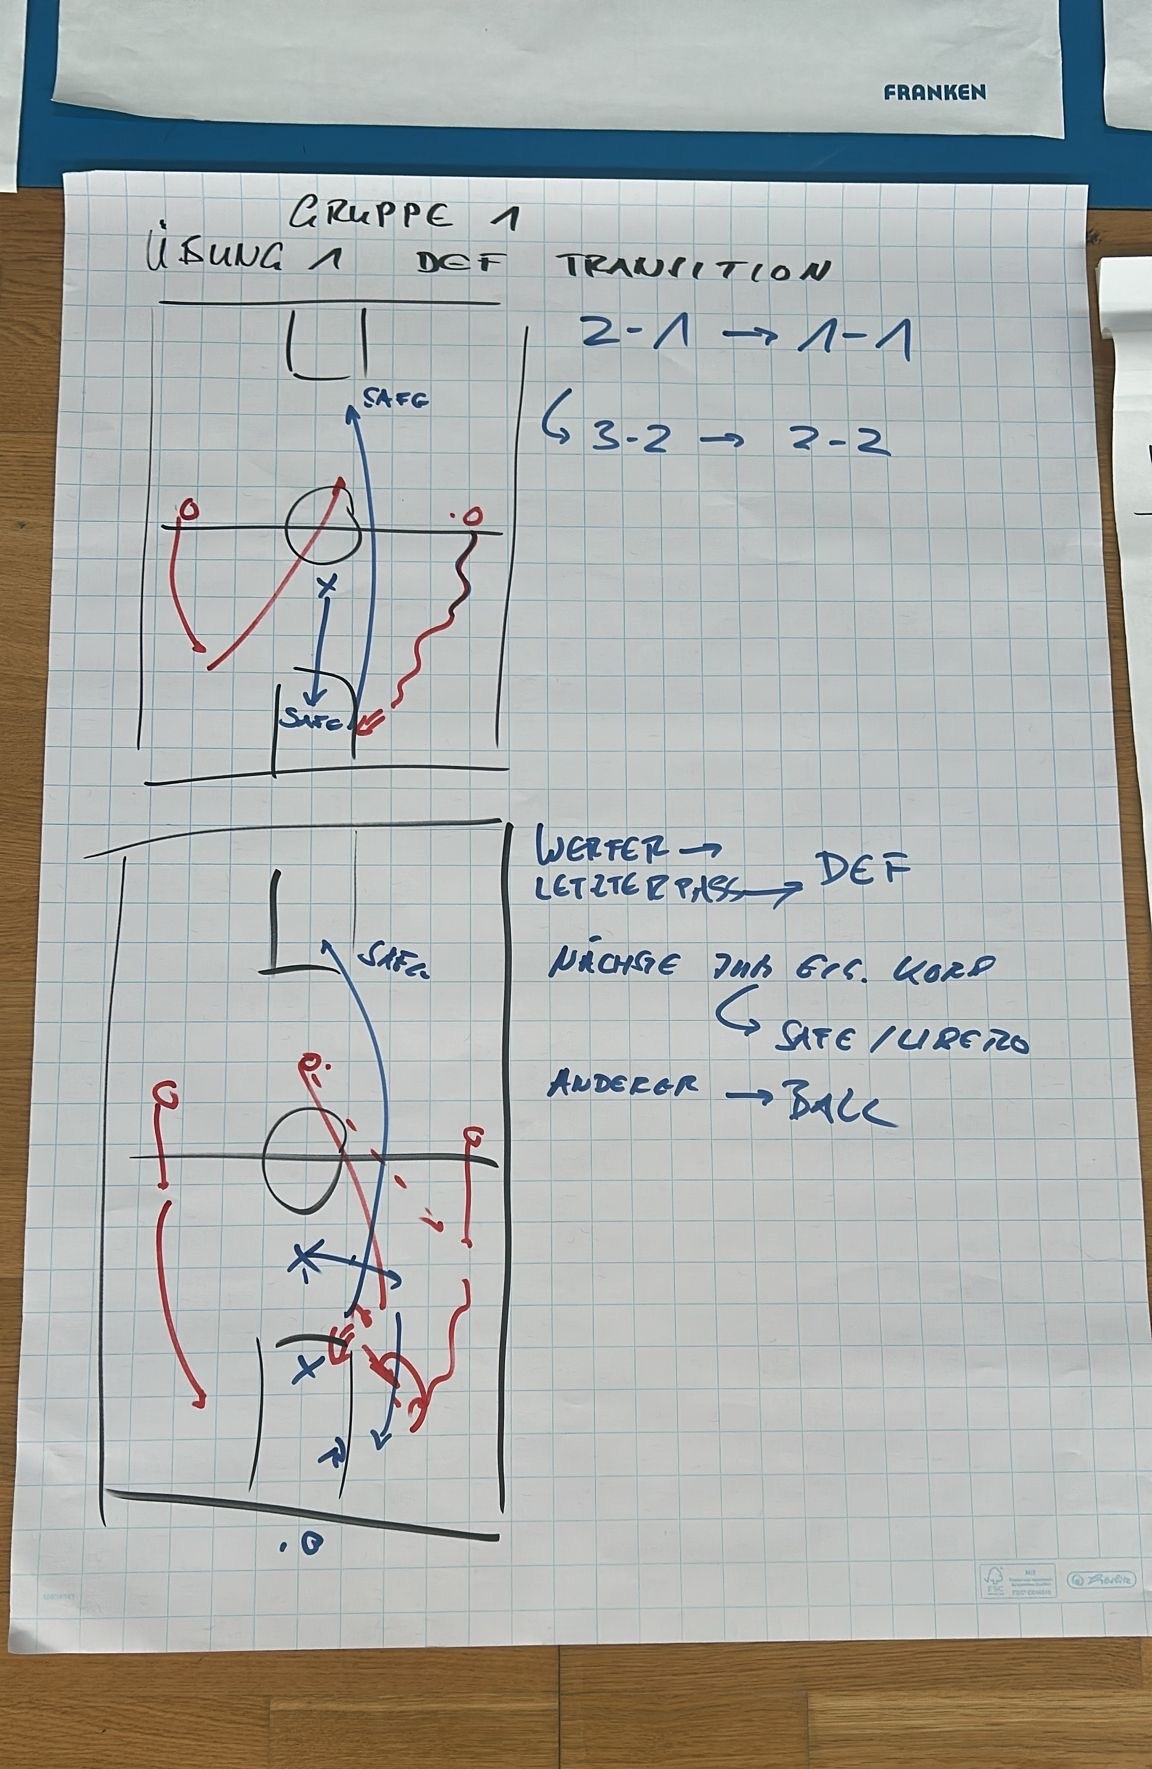 FRANKEN
GRUPPE 1
ÜBUNG 1 DEF TRANSITION
2-1 → 1-1
3-2 → 2-2
SAFE
O
O
X
SAFE
WERFER →
LETZTER PASS → DEF
NÄCHSTE ZUM EIG. KORB
SAFE / LIBERO
ANDERER → BALL
SAFE
O
O
O
X
X
O
FSC
MIX